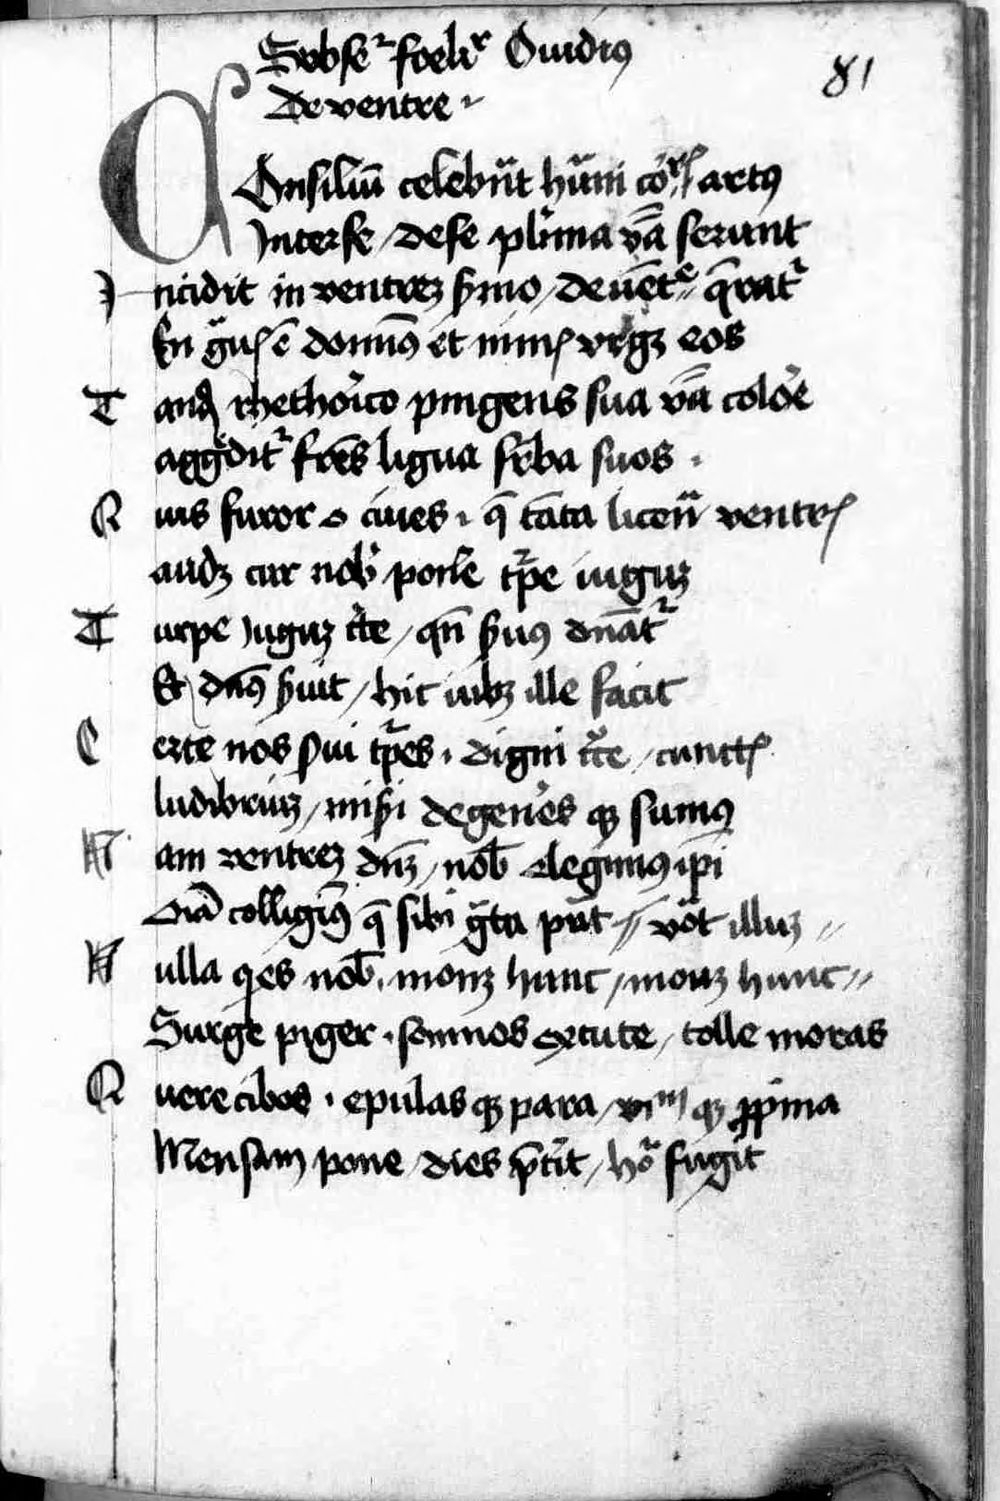 Sebseʳ foelixʳ Ouidiꝰ
De ventre
81
Consiliū celebrāt hūani corꝑis artꝰ
Inter se / de se plīma v̄ba serunt
Incidit in ventrez s̄mo / de uētᵉ q̄ratʳ
En gᵃuis ē domīꝰ et nimis vrgꝫ eos
T andē rhethorico pingens sua v̄ba colore
aggᵉditʳ frēs ligua suꝑba suos .
Q uis furor o ciues . q̄ tāta licen̄ ventris
audꝫ cur nobis ponere tʳpe iuguꝫ
T urpe iuguꝫ cʳte / qn̄ s̄uꝰ dn̄atʳ
Et dn̄ꝰ s̄uit / hic iubꝫ ille facit
C erte nos s̄ui tʳpes . digni cʳte / cunctis
ludibriuꝫ / mis̄i degeneres qꝫ sumꝰ
N am ventreꝫ dn̄ꝫ / nob̄ elegimꝰ ip̄i
Oīa colligimꝰ q̄ sibi gᵃta put̄ // vorat illuꝫ //
N ulla quies nob̄ . mouꝫ hunc / mouꝫ hunc //
Surge piger . somnos excute / tolle moras
Q uere cibos . epulas qꝫ para / vinū qꝫ ꝓpina
Mensam pone / dies p̄terit / hora fugit